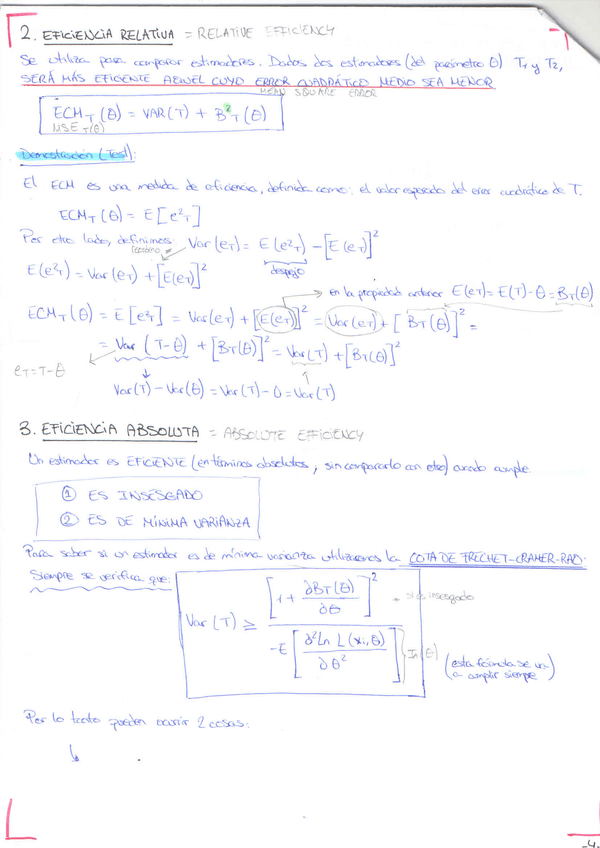 2. EFICIENCIA RELATIVA = RELATIVE EFFICIENCY
Se utiliza para comparar estimadores. Dados dos estimadores (del parámetro θ) T₁ y T₂,
SERÁ MÁS EFICIENTE AQUEL CUYO ERROR CUADRÁTICO MEDIO SEA MENOR
MEAN SQUARE ERROR
ECM_T(θ) = VAR(T) + B²_T(θ)
MSE_T(θ)
Demostración (Test):
El ECM es una medida de eficiencia, definida como: el valor esperado del error cuadrático de T.
ECM_T(θ) = E[e²_T]
Por otro lado, definimos: Var(e_T) = E(e²_T) - [E(e_T)]²
despejo
E(e²_T) = Var(e_T) + [E(e_T)]²
en la propiedad anterior E(e_T) = E(T) - θ = B_T(θ)
ECM_T(θ) = E[e²_T] = Var(e_T) + [E(e_T)]² = Var(e_T) + [B_T(θ)]² =
= Var (T-θ) + [B_T(θ)]² = Var(T) + [B_T(θ)]²
e_T = T-θ
Var(T) - Var(θ) = Var(T) - 0 = Var(T)
3. EFICIENCIA ABSOLUTA = ABSOLUTE EFFICIENCY
Un estimador es EFICIENTE (en términos absolutos, sin compararlo con otro) cuando cumple
① ES INSESGADO
② ES DE MÍNIMA VARIANZA
Para saber si un estimador es de mínima varianza utilizaremos la COTA DE FRECHET-CRAMER-RAO.
Siempre se verifica que:
Var(T) ≥ [1 + ∂B_T(θ)/∂θ]² / -E[∂²Ln L(xᵢ,θ)/∂θ²]
si es insesgado
In(θ)
(esta fórmula se va a cumplir siempre)
Por lo tanto pueden ocurrir 2 cosas:
-4-